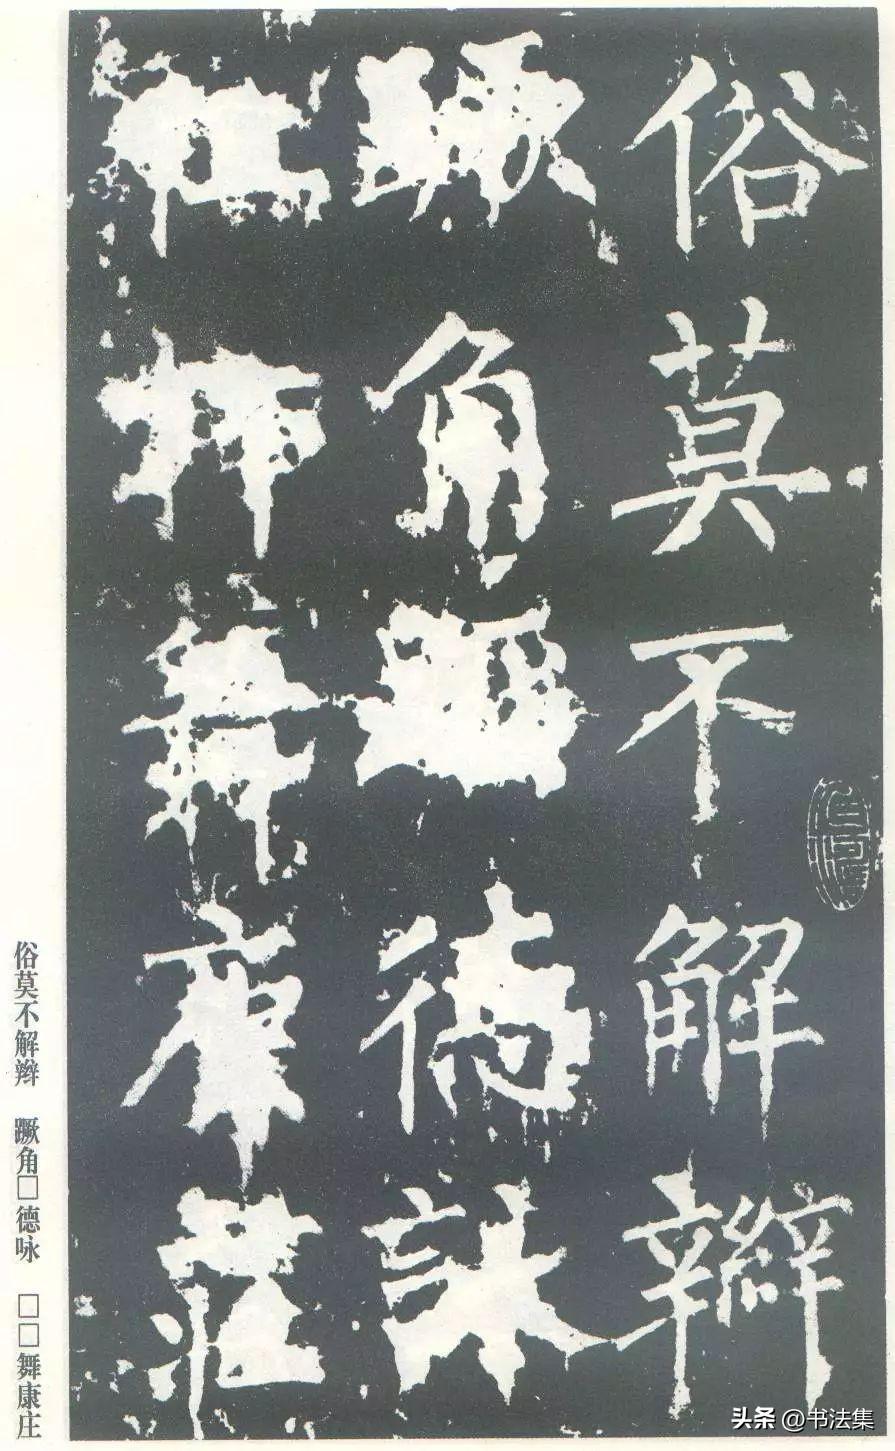 俗莫不解辫
蹶角德詠
舞康莊
俗莫不解辫 蹶角□德咏 □□舞康庄
头条 @书法集